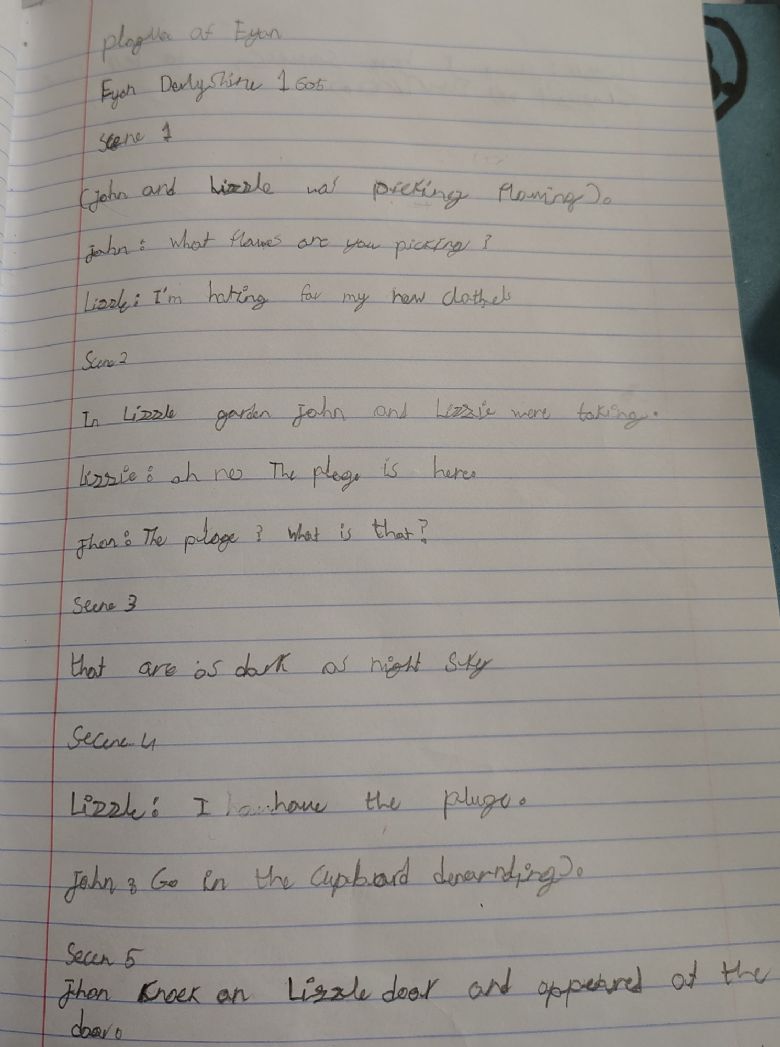 plague of Eyan
Eyan Derlyshire 1605
Scene 1
(John and Lizzle was picking flowing).
John: What flowes are you picking?
Lizzle: I'm hating for my new clothels
Scene 2
In Lizzle garden John and Lizzie were taking.
Lizzie: oh no The plage is here
Jhon: The plage? What is that?
Secne 3
that are as dark as night sky
Secene 4
Lizzle: I have the pluge.
John: Go in the cupboard demarnding).
Secen 5
Jhon knoek on Lizzle door and appeared at the
door.